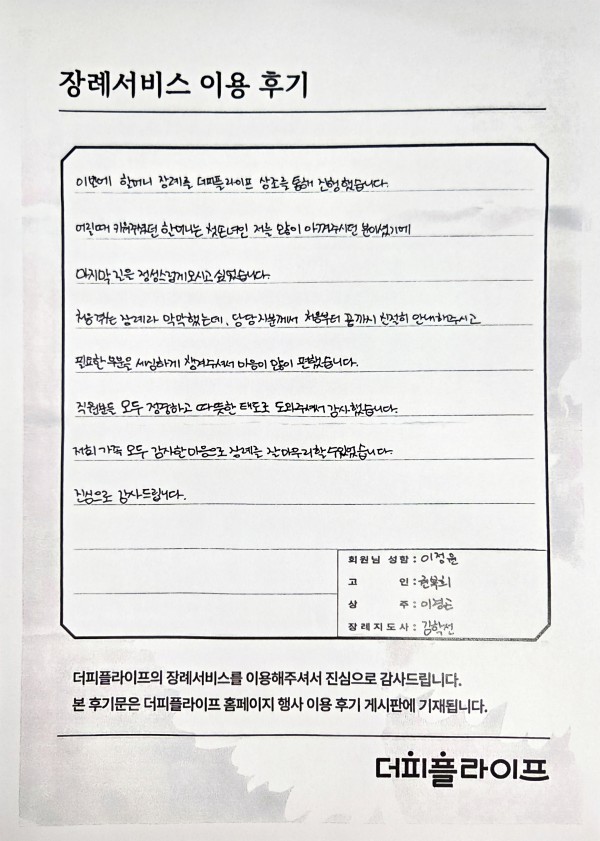 장례서비스 이용 후기
이번에 할머니 장례를 더피플라이프 상조를 통해 진행했습니다.
어릴때 키워주셨던 할머니는 첫손녀인 저를 많이 아껴주시던 분이셨기에
마지막 길은 정성스럽게 모시고 싶었습니다.
처음 겪는 장례라 막막했는데, 담당자분께서 처음부터 끝까지 친절히 안내해주시고
필요한 부분을 세심하게 챙겨주셔서 마음이 많이 편했습니다.
직원분들 모두 정중하고 따뜻한 태도로 도와주셔서 감사했습니다.
저희 가족 모두 감사한 마음으로 장례를 잘 마무리할 수 있었습니다.
진심으로 감사드립니다.
회원님 성함 : 이정윤
고 인 : 권복희
상 주 :
장례지도사 : 김학선
더피플라이프의 장례서비스를 이용해주셔서 진심으로 감사드립니다.
본 후기문은 더피플라이프 홈페이지 행사 이용 후기 게시판에 기재됩니다.
더피플라이프